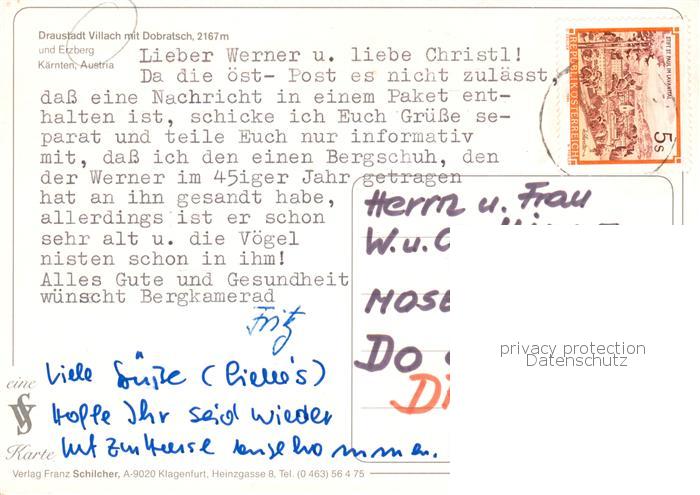 Draustadt Villach mit Dobratsch, 2167m
und Erzberg
Kärnten, Austria
Lieber Werner u. liebe Christl!
Da die öst- Post es nicht zulässt,
daß eine Nachricht in einem Paket ent-
halten ist, schicke ich Euch Grüße se-
parat und teile Euch nur informativ
mit, daß ich den einen Bergschuh, den
der Werner im 45iger Jahr getragen
hat an ihn gesandt habe,
allerdings ist er schon
sehr alt u. die Vögel
nisten schon in ihm!
Alles Gute und Gesundheit
wünscht Bergkamerad
Fritz
Viele Grüße
Hoffe Ihr seid wieder
gut zu Hause
eine
Karte
Verlag Franz Schilcher, A-9020 Klagenfurt, Heinzgasse 8, Tel. (0 463) 56 4 75
REPUBLIK ÖSTERREICH
5s
Herrn u. Frau
W. u. C
MOSE
Do
Di
privacy protection
Datenschutz